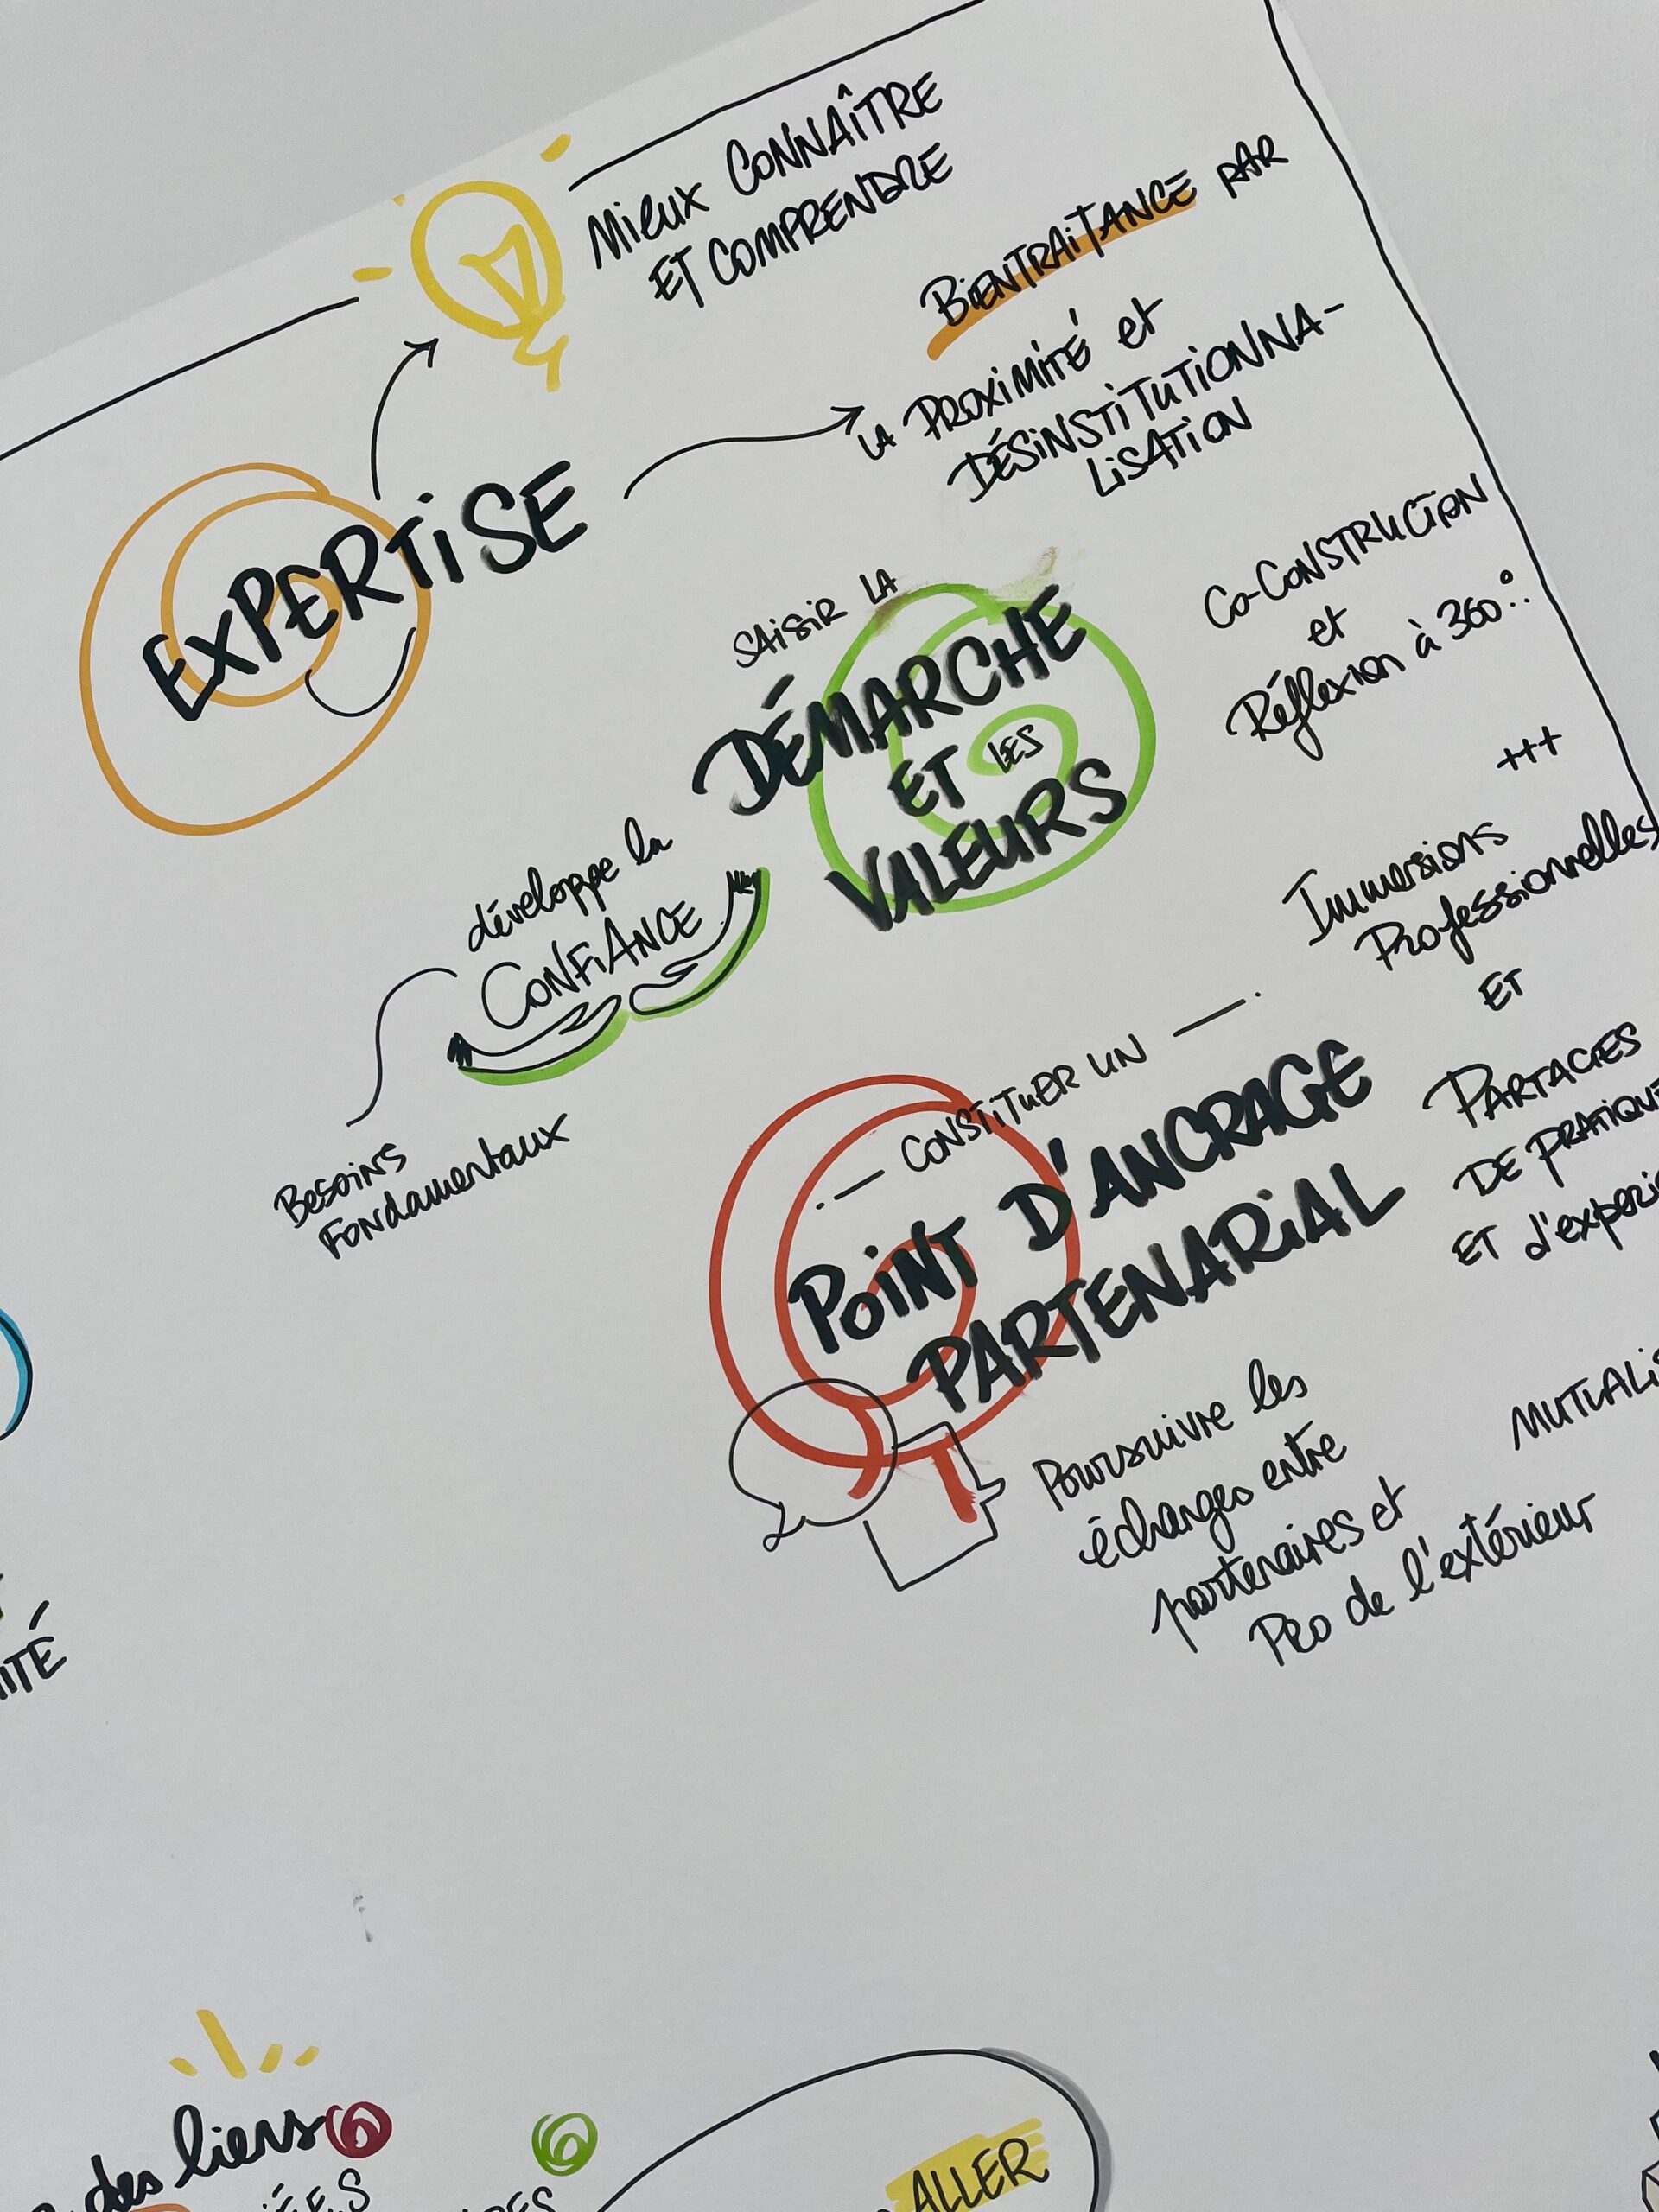 MIEUX CONNAÎTRE
ET COMPRENDRE
BIENTRAITANCE PAR
LA PROXIMITÉ et
DÉSINSTITUTIONNA-
LISATION
EXPERTISE
SAISIR LA
DÉMARCHE
ET LES
VALEURS
CO-CONSTRUCTION
et
Réflexion à 360°
+++
développe la
CONFIANCE
Besoins
Fondamentaux
Immersions
Professionnelles
ET
PARTAGES
DE PRATIQUE
ET d'experi
CONSTITUER UN
POINT D'ANCRAGE
PARTENARIAL
Poursuivre les
échanges entre
partenaires et
Pro de l'extérieur
MUTUALIS
ITÉ
des liens
ALLER